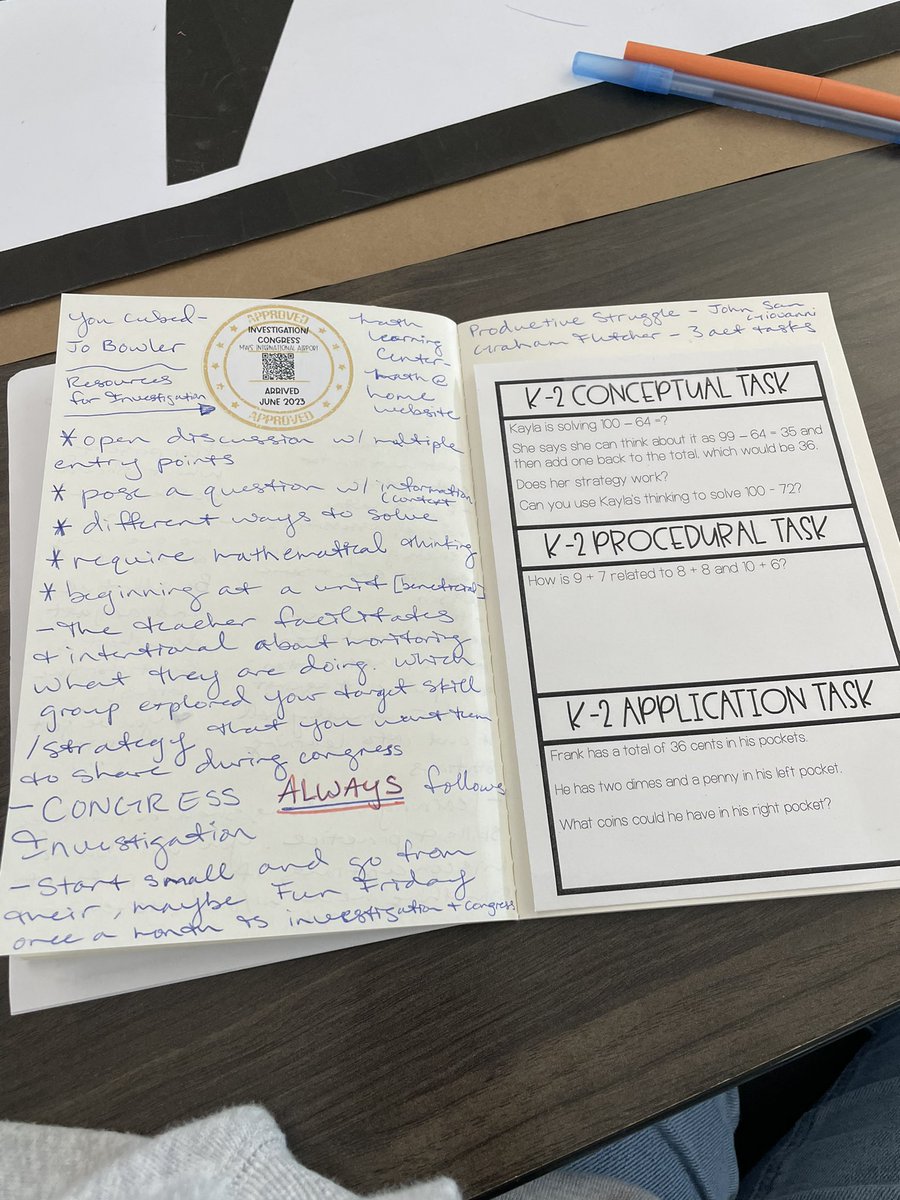 You cubed-
Jo Bowler
Resources
for Investigation
APPROVED
INVESTIGATION/
CONGRESS
MWS. INTERNATIONAL AIRPORT
ARRIVED
JUNE 2023
APPROVED
math
Learning
Center-
math@
home
website
* open discussion w/ multiple
entry points
* pose a question w/ information
(context
* different ways to solve
* require mathematical thinking
* beginning at a unit [beneficial]
- The teacher facilitates
+ intentional about monitoring
what they are doing. which
group explored your target skill
/strategy that you want them
to share during congress
- CONGRESS ALWAYS follows
Investigation
- Start small and go from
their, maybe Fun Friday
once a month is investigation + congress
Productive Struggle - John San
Giovanni
Graham Fletcher - 3 act tasks
K-2 CONCEPTUAL TASK
Kayla is solving 100 – 64 =?
She says she can think about it as 99 – 64 = 35 and
then add one back to the total, which would be 36.
Does her strategy work?
Can you use Kayla's thinking to solve 100 - 72?
K-2 PROCEDURAL TASK
How is 9 + 7 related to 8 + 8 and 10 + 6?
K-2 APPLICATION TASK
Frank has a total of 36 cents in his pockets.
He has two dimes and a penny in his left pocket.
What coins could he have in his right pocket?